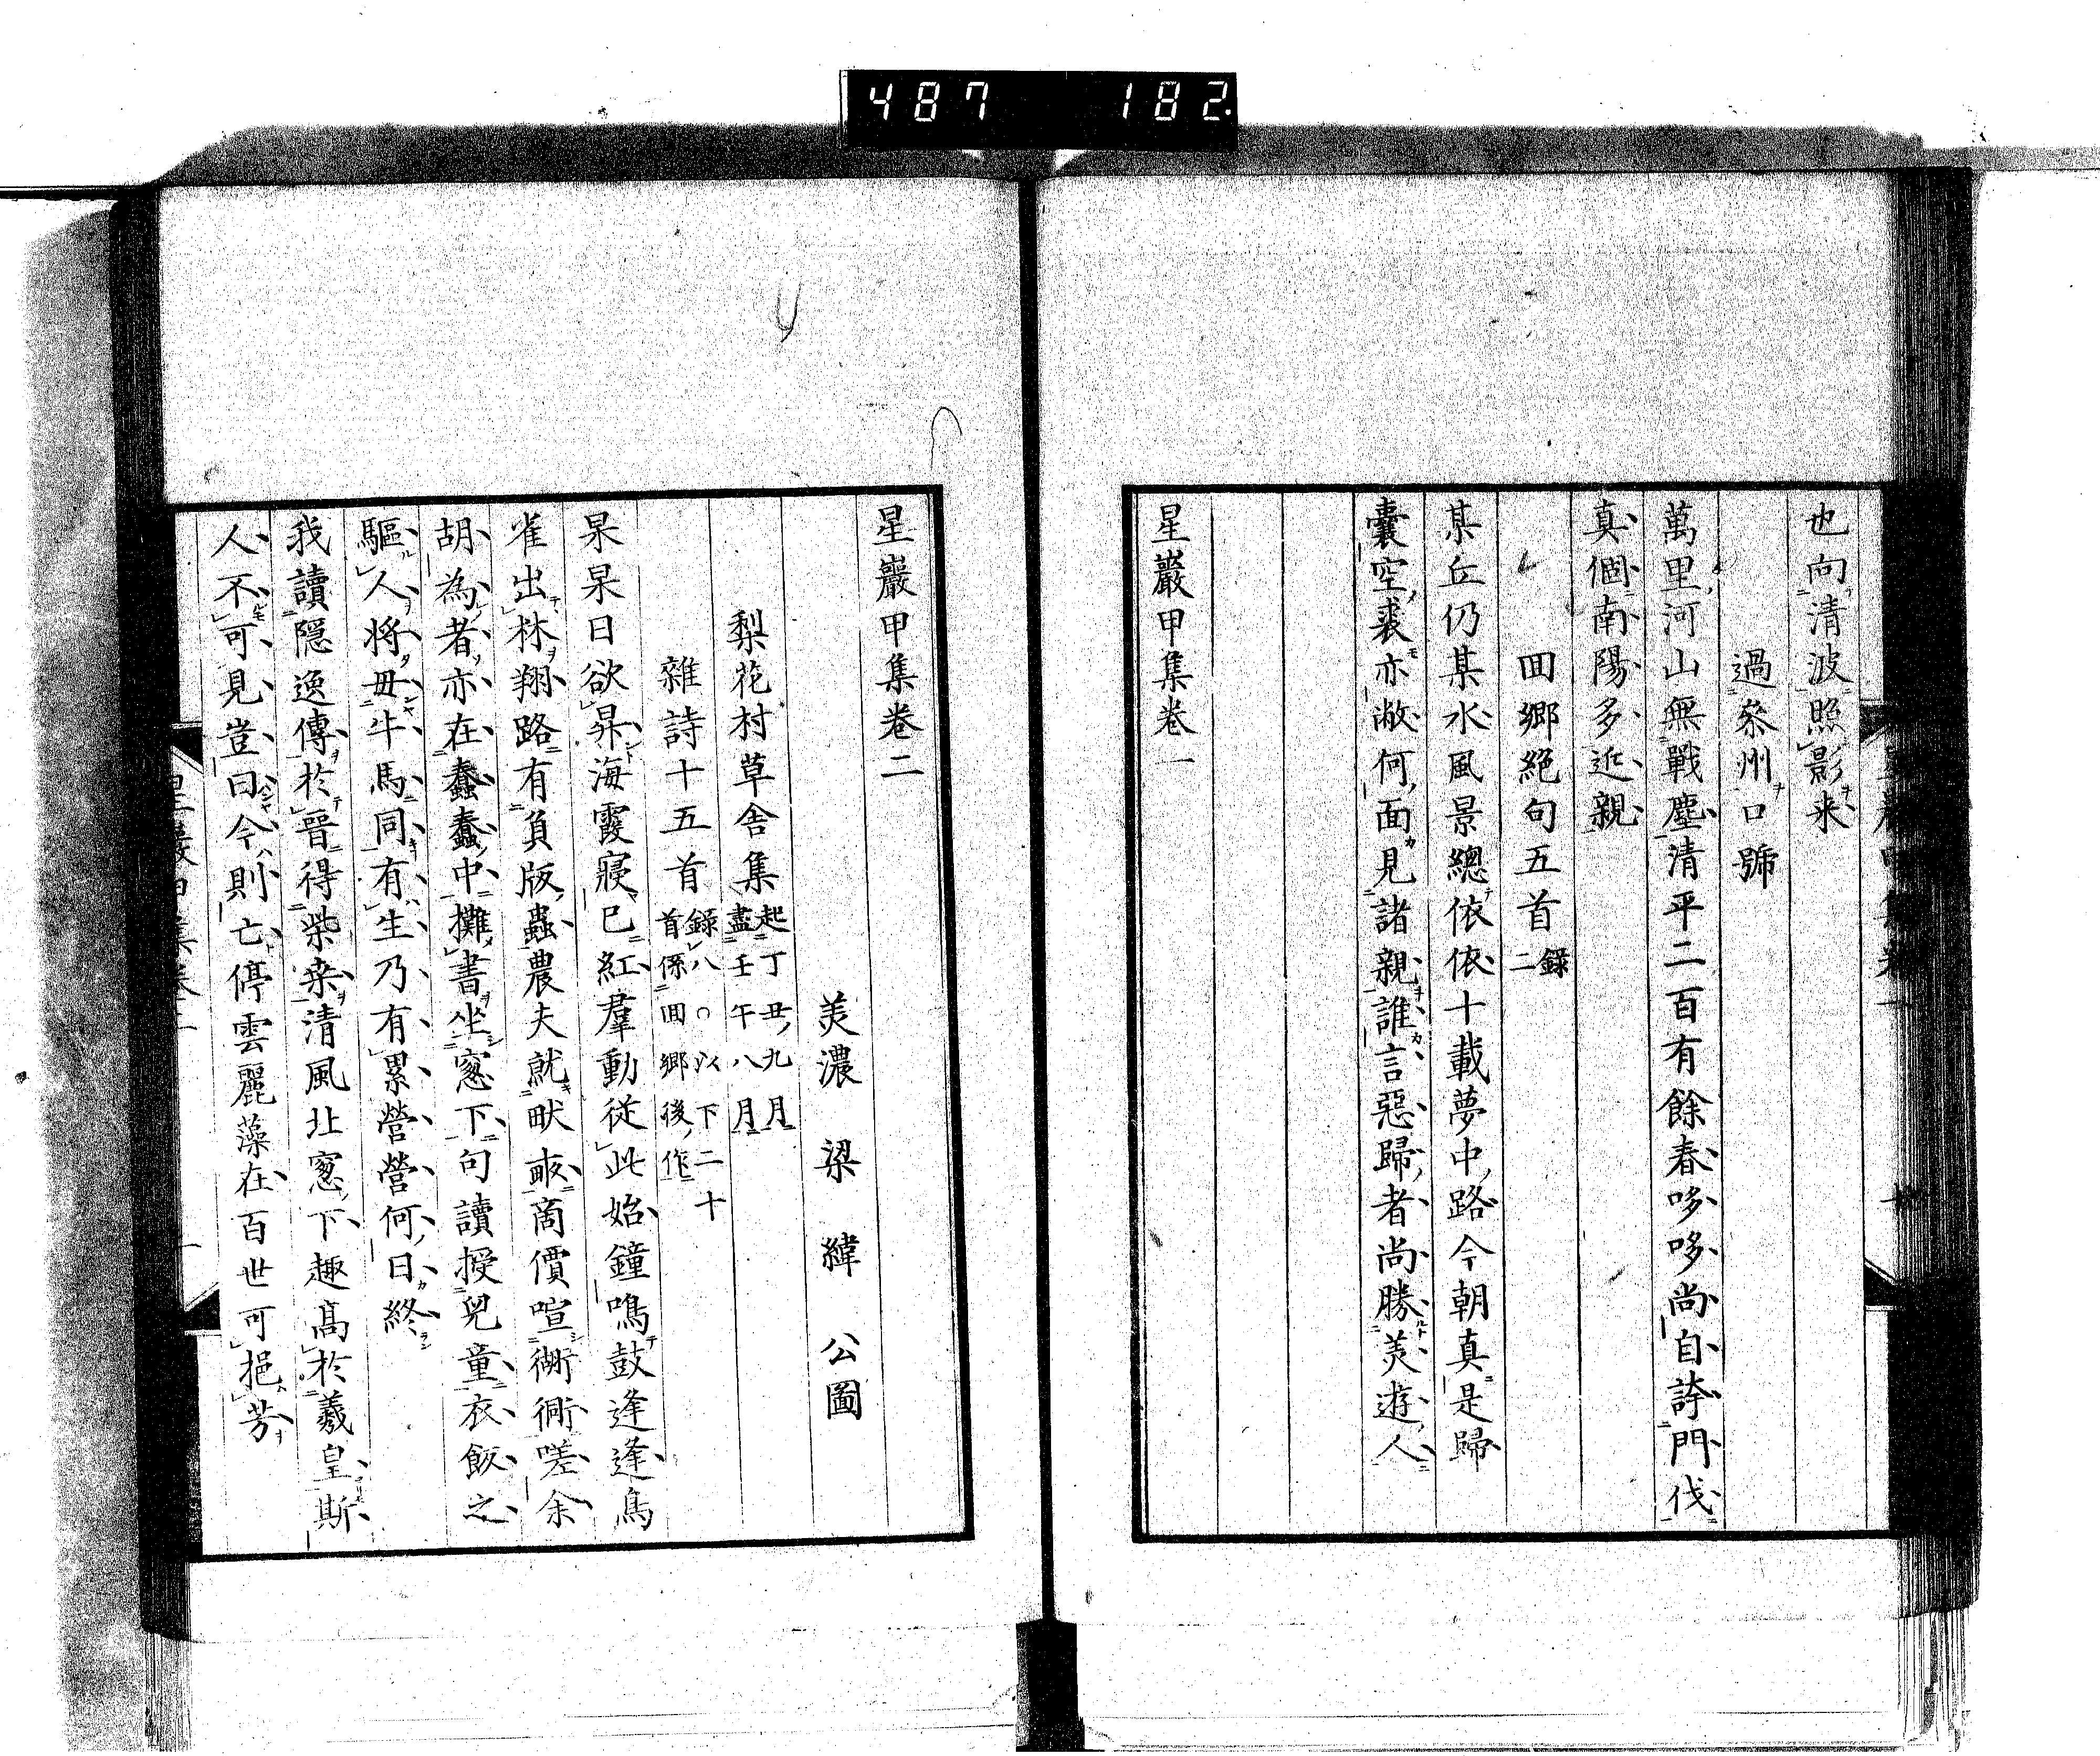 487 182
也向清波照影来
過参州口號
萬里河山無戰塵清平二百有餘春哆哆尚自誇門伐
真個南陽多近親
回郷絶句五首録二
某丘仍某水風景總依依十載夢中路今朝真是歸
囊空裘亦敝何面見諸親誰言惡歸者尚勝羙遊人
星巖甲集卷一
星巖甲集卷二
羙濃 梁緯 公圖
梨花村草舎集起丁丑九月盡壬午八月
雜詩十五首録八○以下二十首係回郷後作
杲杲日欲昇海霞寢已紅羣動従此始鐘鳴鼓逢逢鳥
雀出林翔路有負版蟲農夫就畎畝商價喧衚衕嗟余
胡為者亦在蠢蠢中攤書坐窓下句讀授兒童衣飯之
驅人将毋牛馬同有生乃有累營營何日終
我讀隠逸傳於晉得柴桒清風北窓下趣髙於羲皇斯
人不可見豈曰今則亡停雲麗藻在百世可挹芳